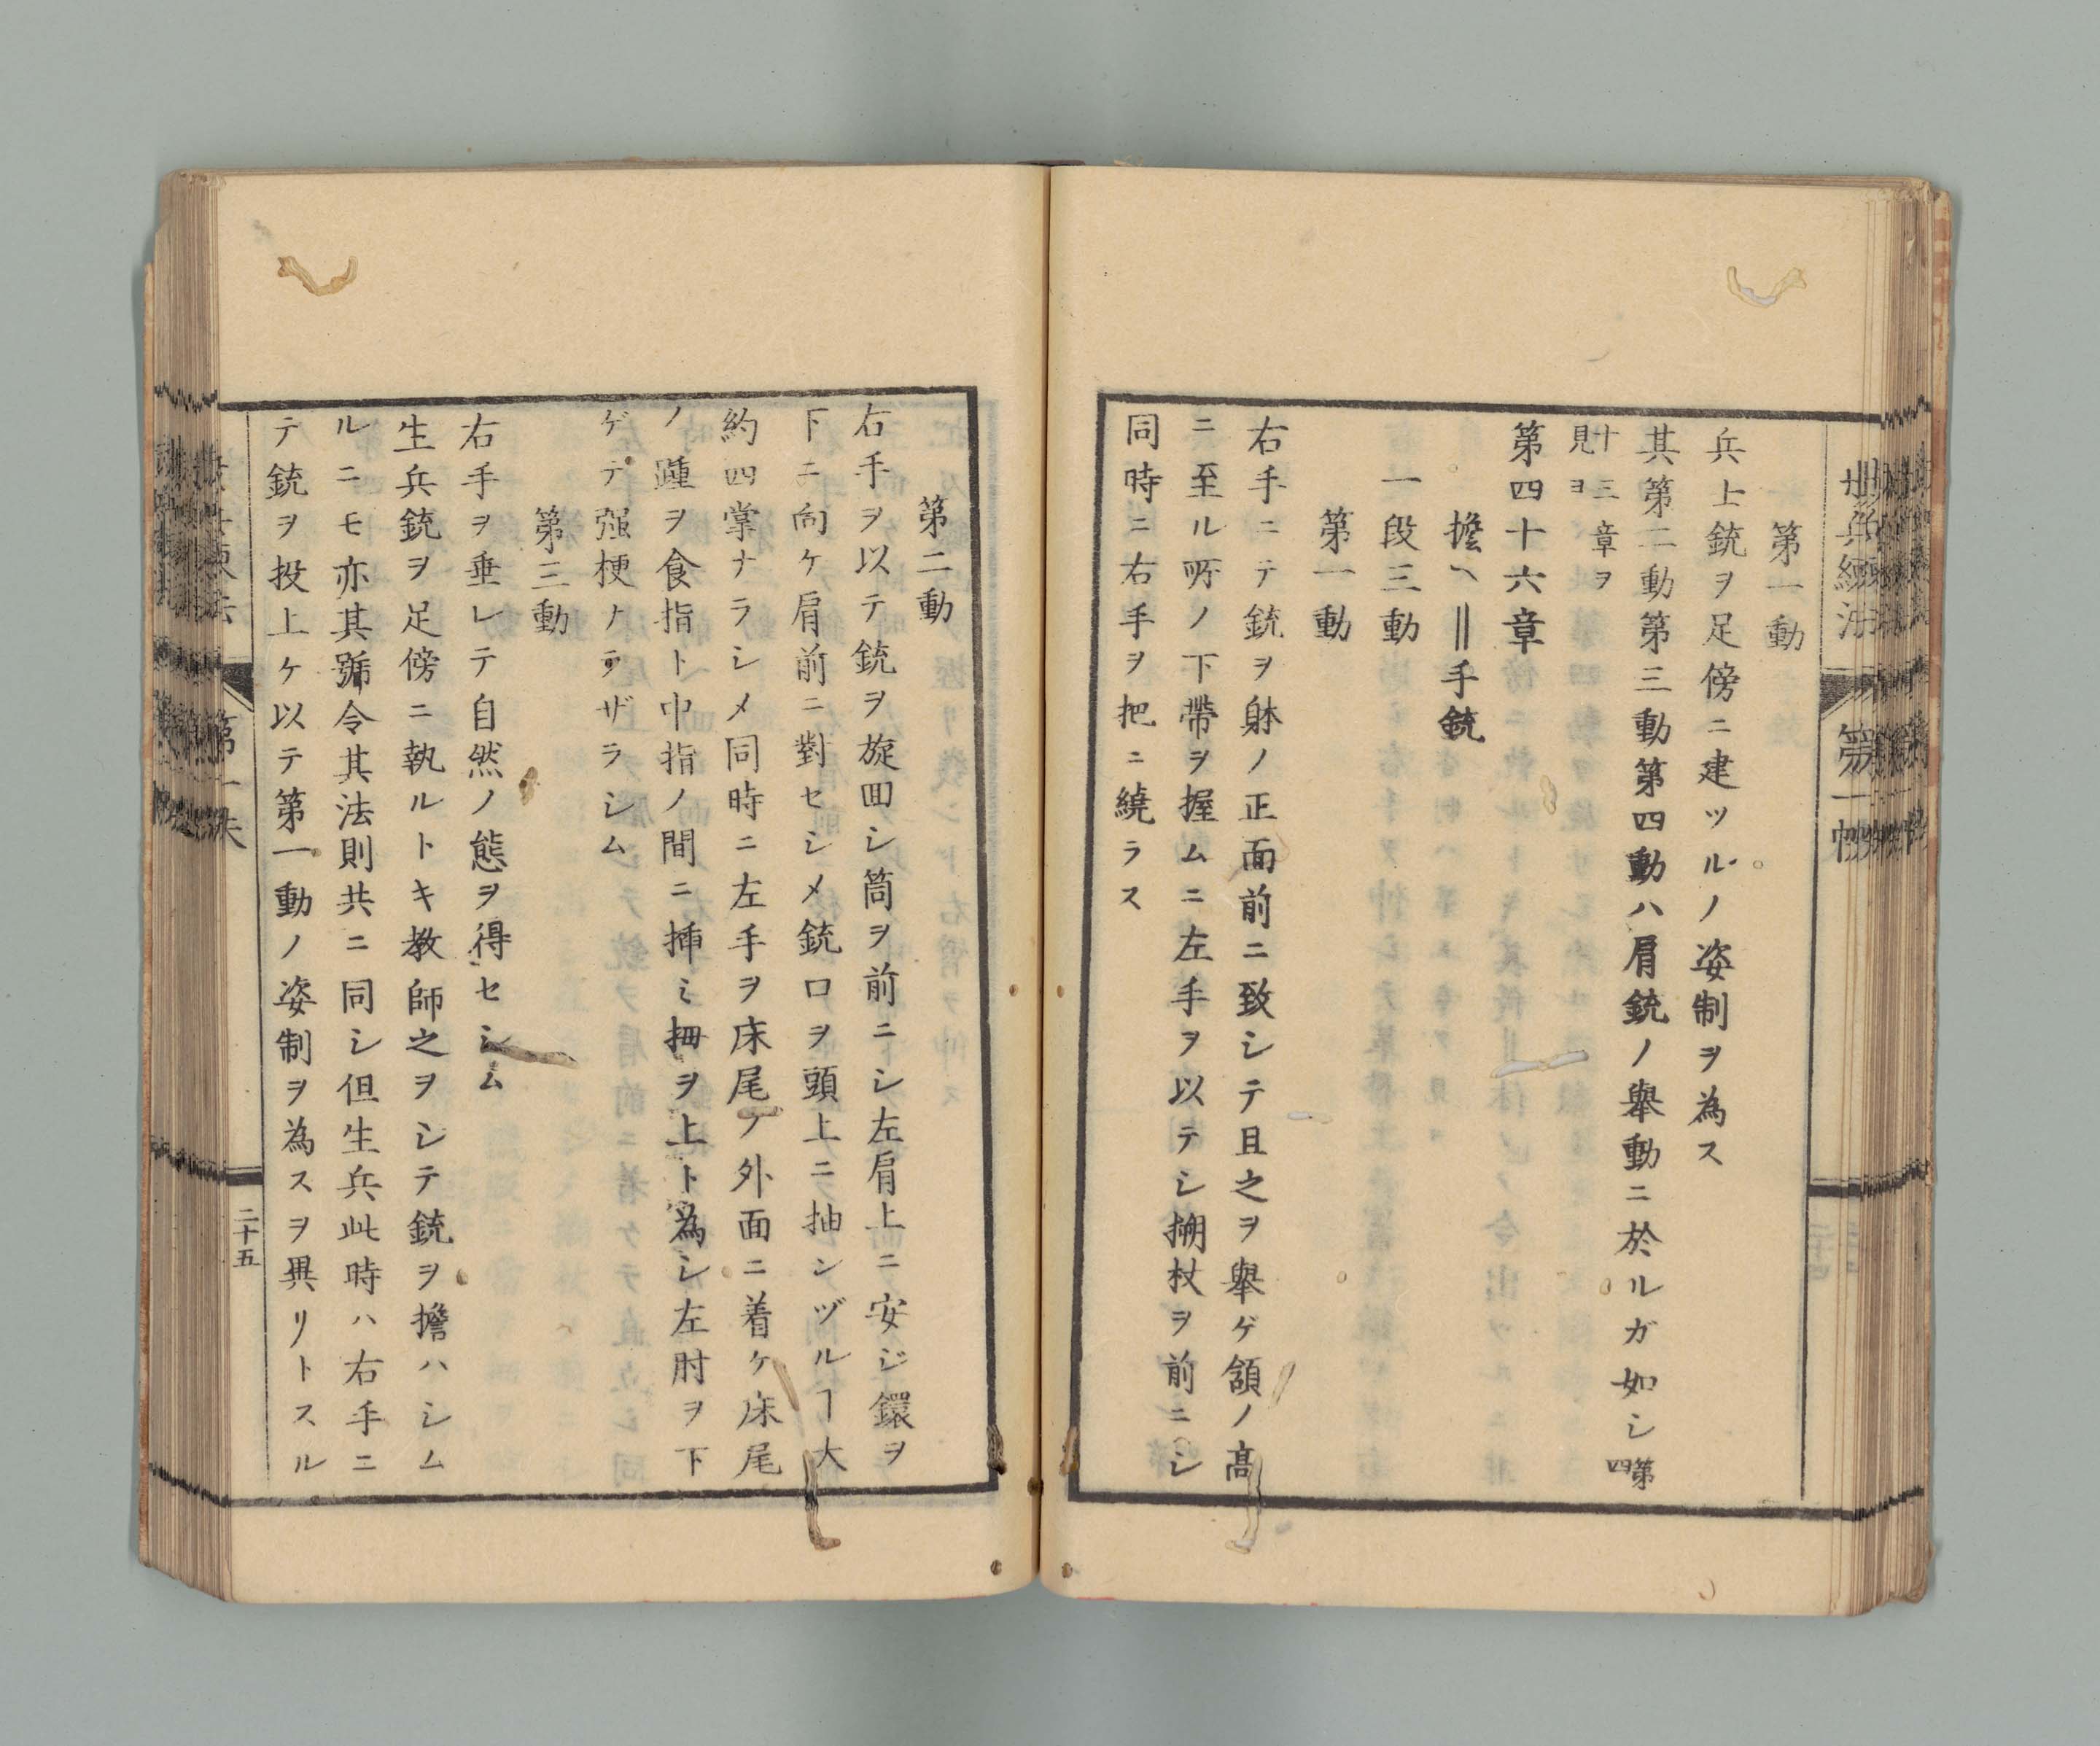 第一動
兵士銃ヲ足傍ニ建ツルノ姿制ヲ為ス
其第二動第三動第四動ハ肩銃ノ舉動ニ於ルガ如シ第四
十三章ヲ
見ヨ
第四十六章
擔ヘ‖手銃
一段三動
第一動
右手ニテ銃ヲ躰ノ正面前ニ致シテ且之ヲ舉ゲ頷ノ高
ニ至ル所ノ下帶ヲ握ムニ左手ヲ以テシ搠杖ヲ前ニシ
同時ニ右手ヲ把ニ繞ラス
第二動
右手ヲ以テ銃ヲ旋回シ筒ヲ前ニシ左肩上ニ安ジ鐶ヲ
下ニ向ケ肩前ニ對セシメ銃口ヲ頭上ニ抽ンヅルヿ大
約四掌ナラシメ同時ニ左手ヲ床尾ノ外面ニ着ケ床尾
ノ踵ヲ食指ト中指ノ間ニ挿ミ拇ヲ上ト為シ左肘ヲ下
ゲテ强梗ナラザラシム
第三動
右手ヲ垂レテ自然ノ態ヲ得セシム
生兵銃ヲ足傍ニ執ルトキ教師之ヲシテ銃ヲ擔ハシム
ルニモ亦其號令其法則共ニ同シ但生兵此時ハ右手ニ
テ銃ヲ投上ケ以テ第一動ノ姿制ヲ為スヲ異リトスル
第一
二十五